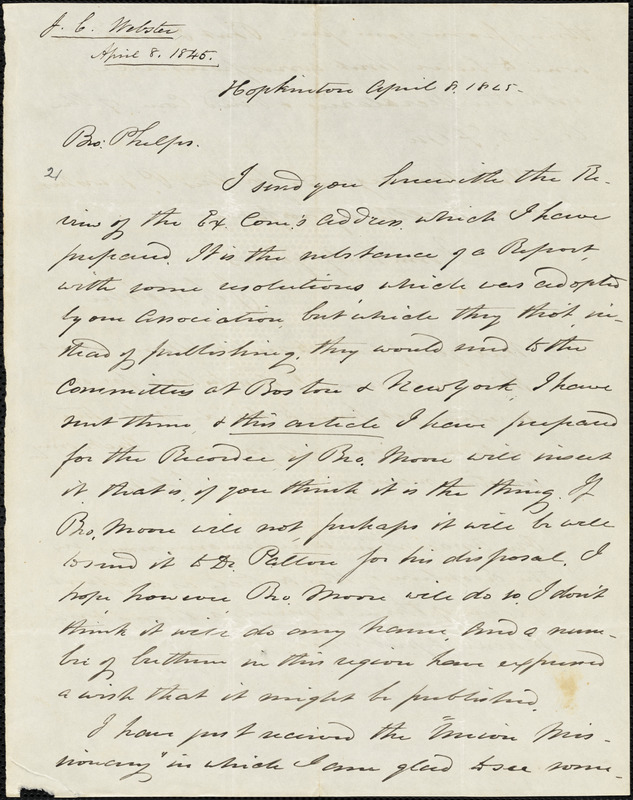 J. C. Webster
April 8. 1845.
Hopkinton April 8. 1845.
Bro. Phelps.
21
I send you herewith the Re-
view of the Ex. Com's address, which I have
prepared. It is the substance of a Report,
with some resolutions which was adopted
by our Association, but which they thot, in-
stead of publishing, they would send to the
Committees at Boston & New York. I have
sent them, & this article I have prepared
for the Recorder if Bro. Moore will insert
it, that is, if you think it is the thing. If
Bro. Moore will not, perhaps it will be well
to send it to Dr. Patton for his disposal. I
hope however Bro. Moore will do so. I don't
think it will do any harm. And a num-
ber of brethren in this region have expressed
a wish that it might be published.
I have just received the "Union Mis-
sionary" in which I am glad to see some-